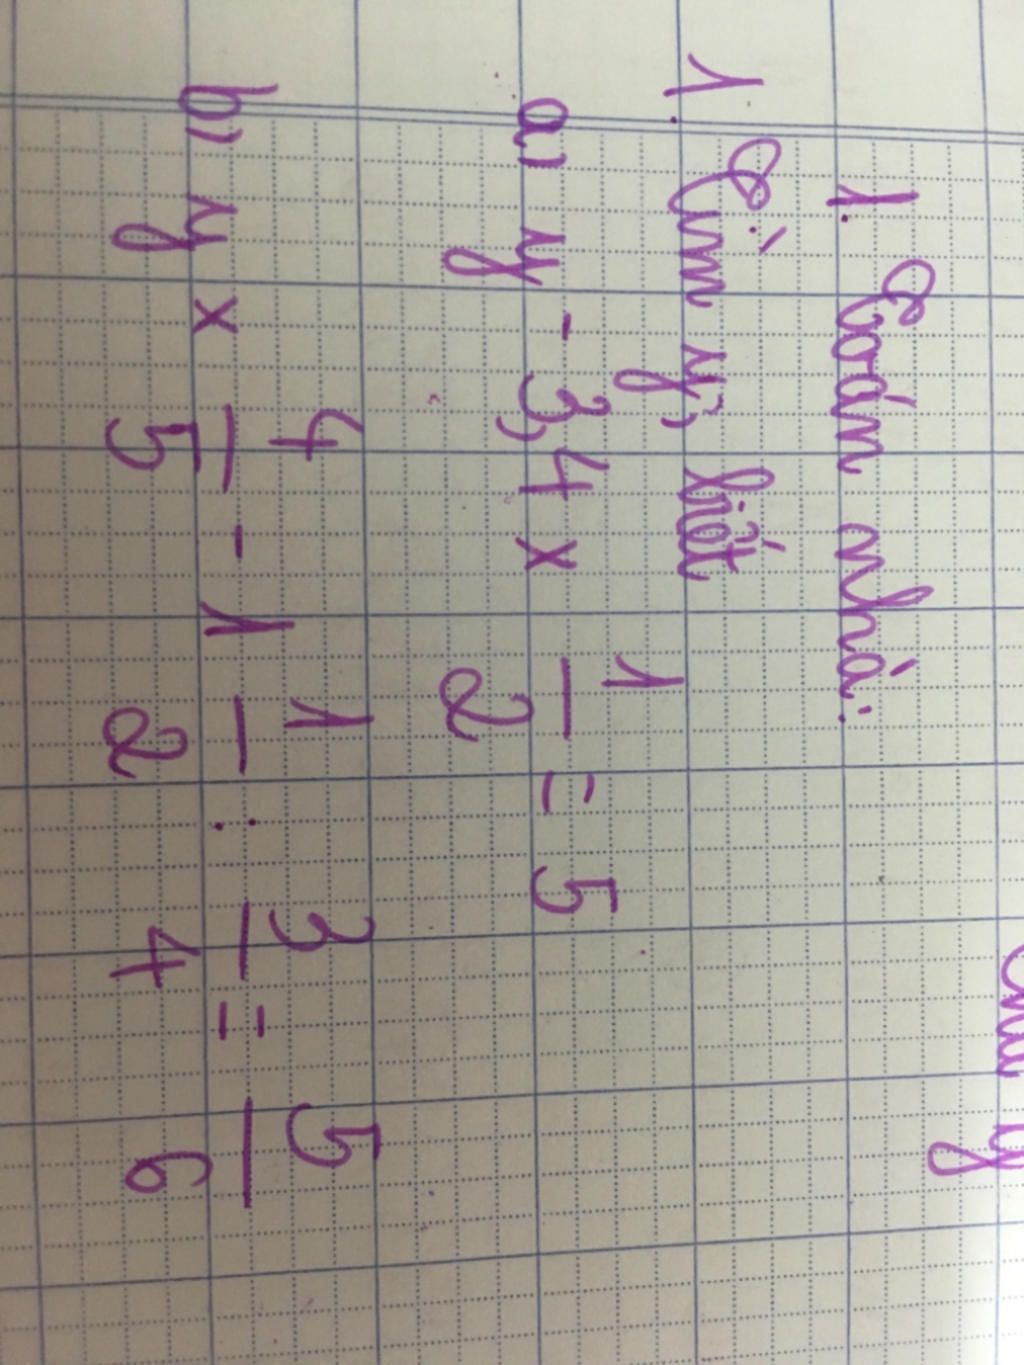 1. Toán nhà:
1. Tìm y, biết
a) y - 3,4 x 1/2 = 5
b) y x 4/5 - 1 1/2 : 3/4 = 5/6